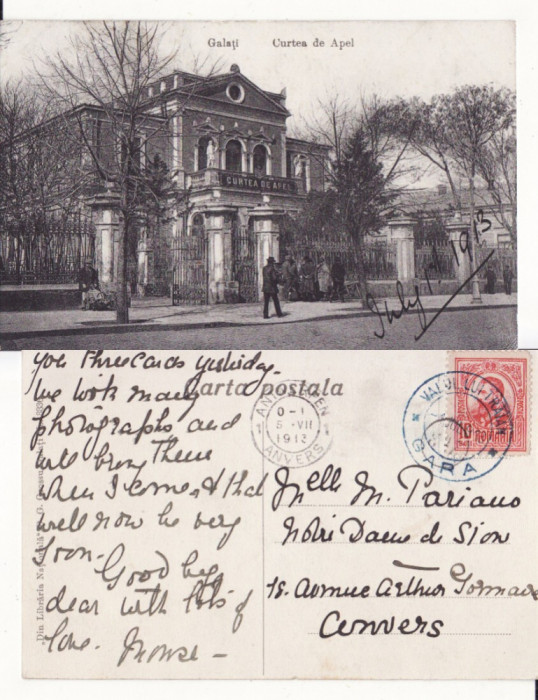 Galați Curtea de Apel
CURTEA DE APEL
July 1913
you three cards yesterday.
we took many
photographs and
will bring them
when I come & that
will now be very
soon.
Good bye
dear with lots of
love.
Carta postala
ANTWERPEN
1 0-1 1
5-VII
1913
ANVERS
GARA
10
ROMANIA
Melle M. Pariano
Notre Dame de Sion
18. Avenue Arthur
Anvers
Din Librăria